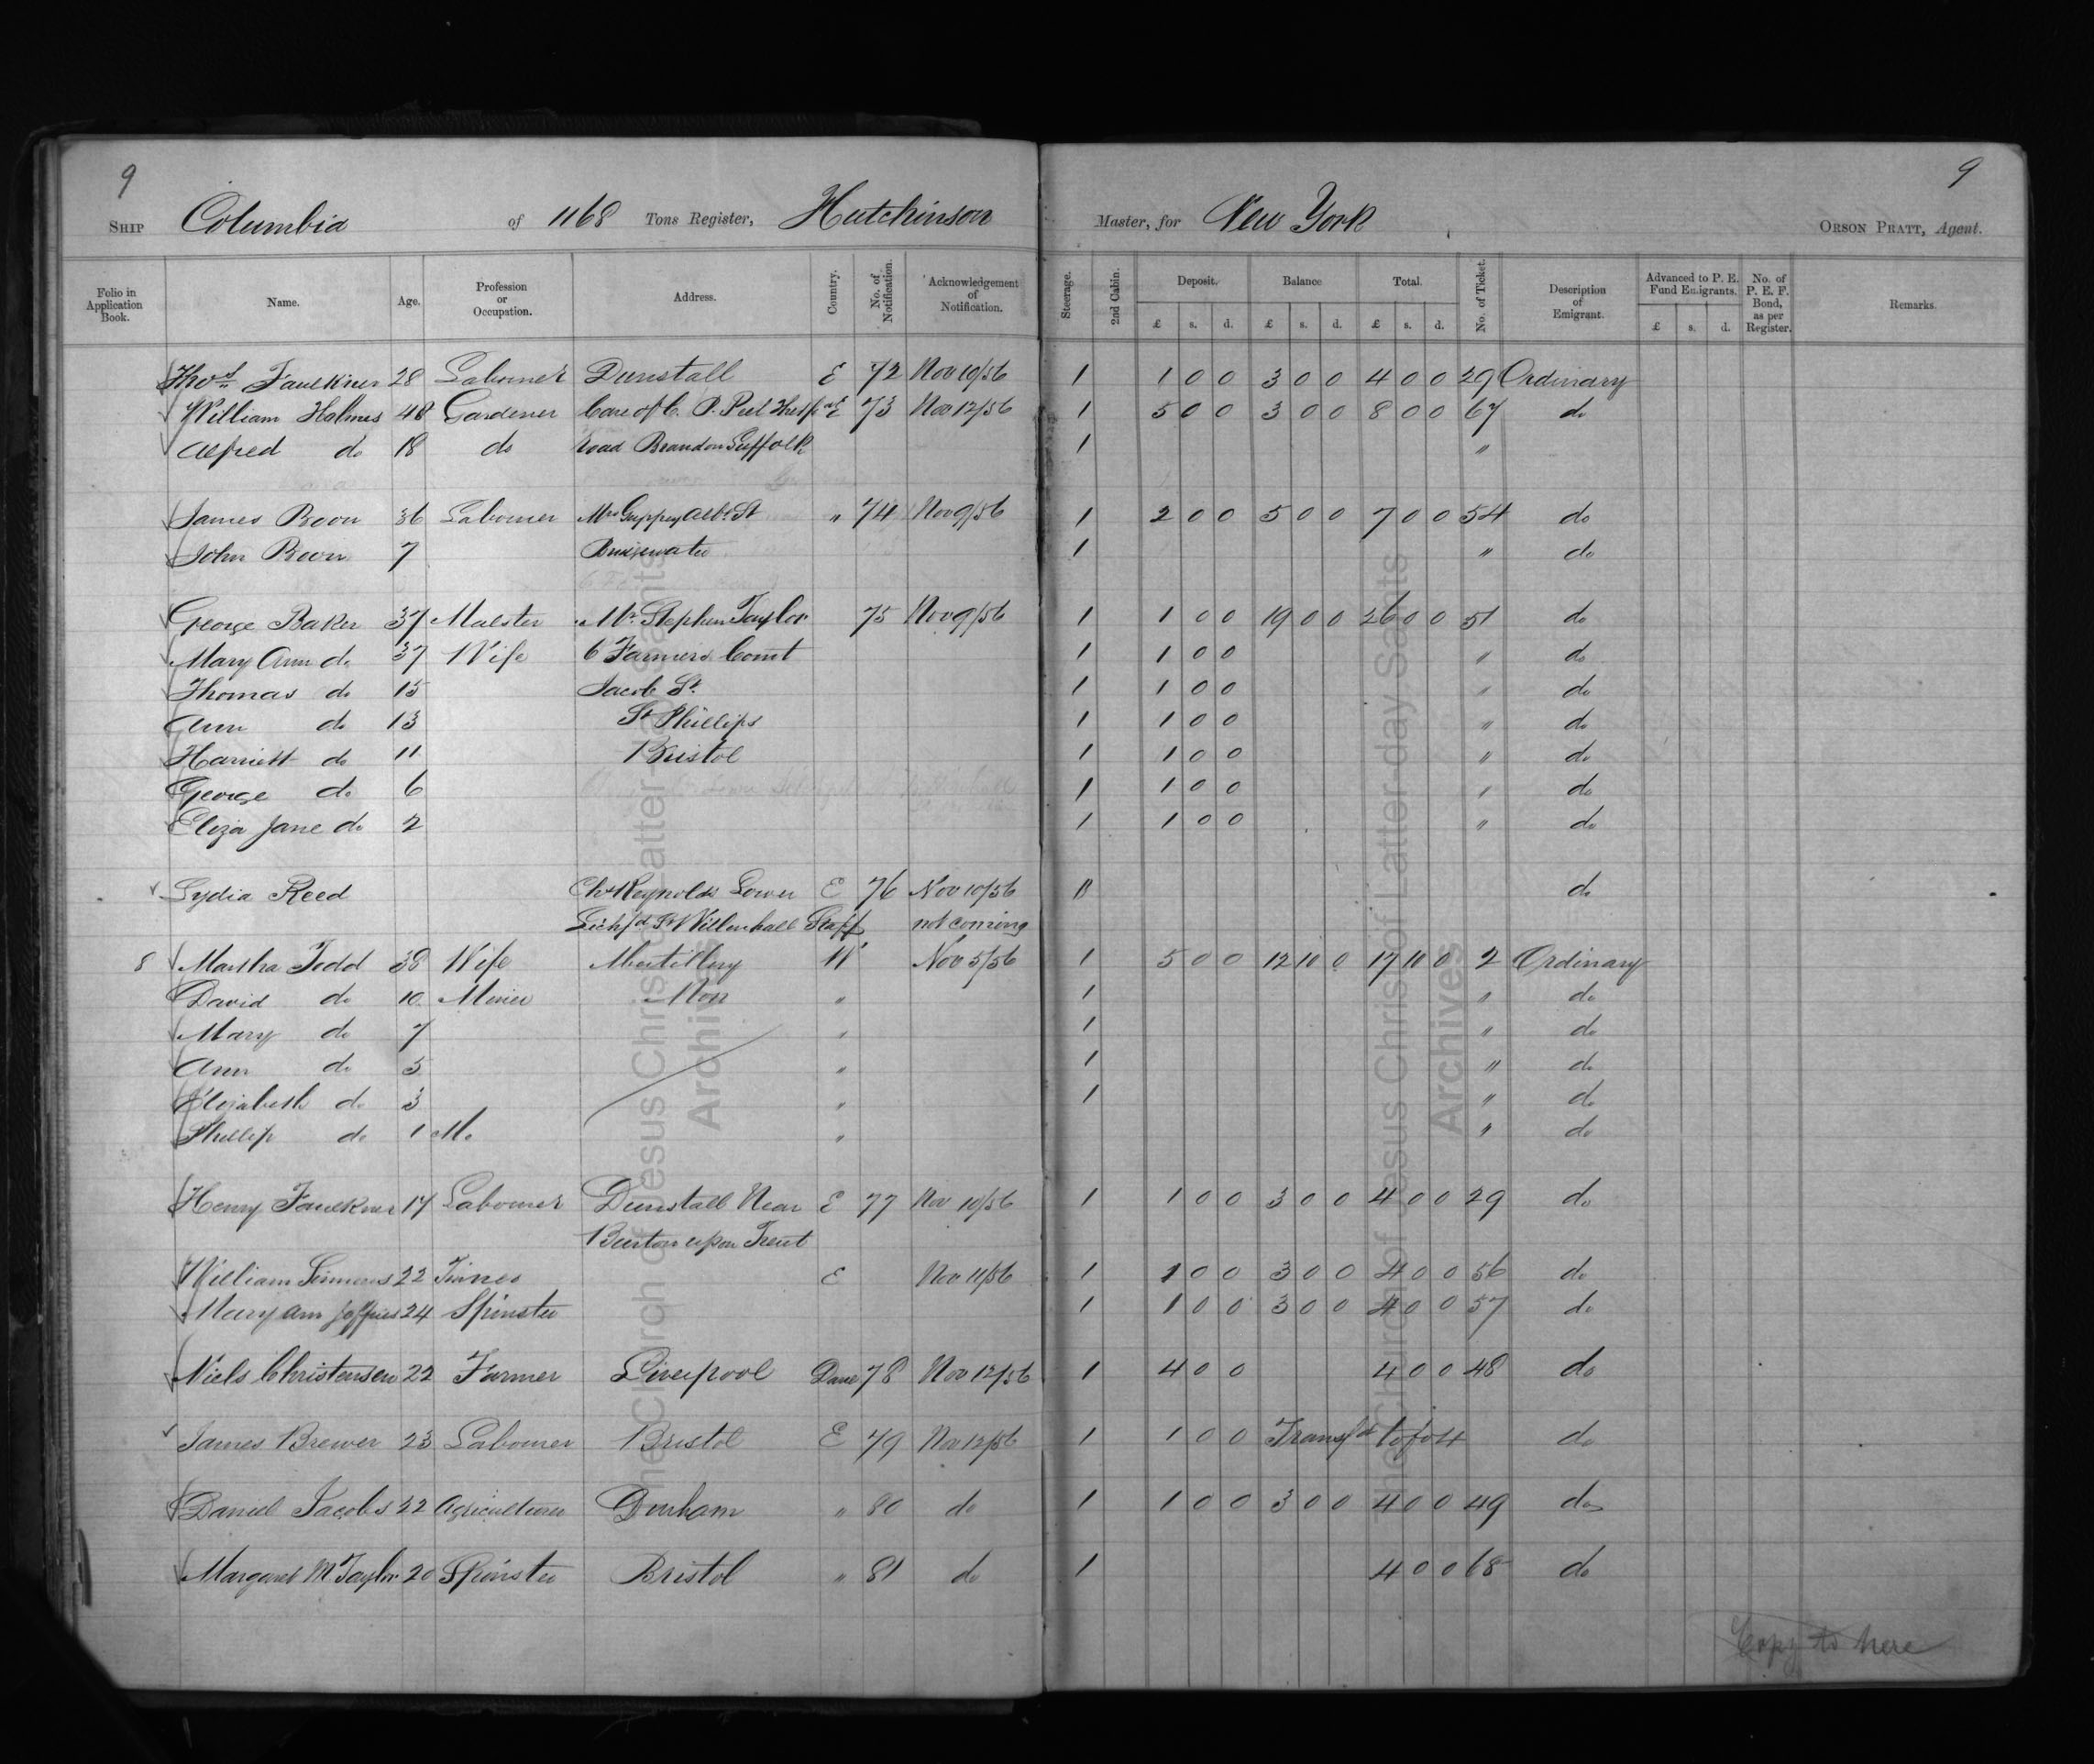 9 9
SHIP Columbia of 1168 Tons Register, Hutchinson Master, for New York ORSON PRATT, Agent.
Folio in Application Book. Name. Age. Profession or Occupation. Address. Country. No. of Notification. Acknowledgement of Notification. Steerage. 2nd Cabin. Deposit. Balance Total. No. of Ticket. Description of Emigrant. Advanced to P. E. Fund Emigrants. No. of P. E. F. Bond, as per Register. Remarks.
£ s. d. £ s. d. £ s. d. £ s. d.
Thos Faulkner 28 Labourer Dunstall E 72 Nov 10/56 1 1 0 0 3 0 0 4 0 0 29 Ordinary
William Holmes 48 Gardener Care of C. P. Peel E 73 Nov 12/56 1 5 0 0 3 0 0 8 0 0 67 do
Alfred do 18 do road Brandon Suffolk 1 "
James Boon 36 Labourer Mrs Guppy Albt St " 74 Nov 9/56 1 2 0 0 5 0 0 7 0 0 54 do
John Boon 7 1 " do
George Baker 37 Mr. Stephen Taylor 75 Nov 9/56 1 1 0 0 19 0 0 26 0 0 51 do
Mary Ann do 37 Wife 6 Farmers Court 1 1 0 0 " do
Thomas do 15 Jacob St. 1 1 0 0 " do
Ann do 13 St Phillips 1 1 0 0 " do
Harriett do 11 Bristol 1 1 0 0 " do
George do 6 1 1 0 0 " do
Eliza Jane do 2 1 1 0 0 " do
Lydia Reed Chs Reynolds Lower E 76 Nov 10/56 do
Lichfd St Willenhall Staff not coming
8 Martha Todd 38 Wife Abertillery W Nov 5/56 1 5 0 0 12 10 0 17 10 0 2 Ordinary
David do 10 Miner Mon " 1 " do
Mary do 7 " 1 " do
Ann do 5 " 1 " do
Elizabeth do 3 " 1 " do
Phillip do 1 M. " " do
Henry Faulkner 17 Labourer Dunstall Near E 77 Nov 10/56 1 1 0 0 3 0 0 4 0 0 29 do
Burton upon Trent
William 22 E Nov 11/56 1 1 0 0 3 0 0 4 0 0 56 do
Mary Ann Jeffries 24 Spinster 1 1 0 0 3 0 0 4 0 0 57 do
Niels Christensen 22 Farmer Liverpool Dane 78 Nov 12/56 1 4 0 0 4 0 0 48 do
James Brewer 23 Labourer Bristol E 79 Nov 12/56 1 1 0 0 Transfd to fo 4 do
Daniel Jacobs 22 Durham " 80 do 1 1 0 0 3 0 0 4 0 0 49 do
Margaret M Taylor 20 Spinster Bristol " 81 do 1 4 0 0 68 do
Copy to here
The Church of Jesus Christ of Latter-day Saints
Archives
The Church of Jesus Christ of Latter-day Saints
Archives